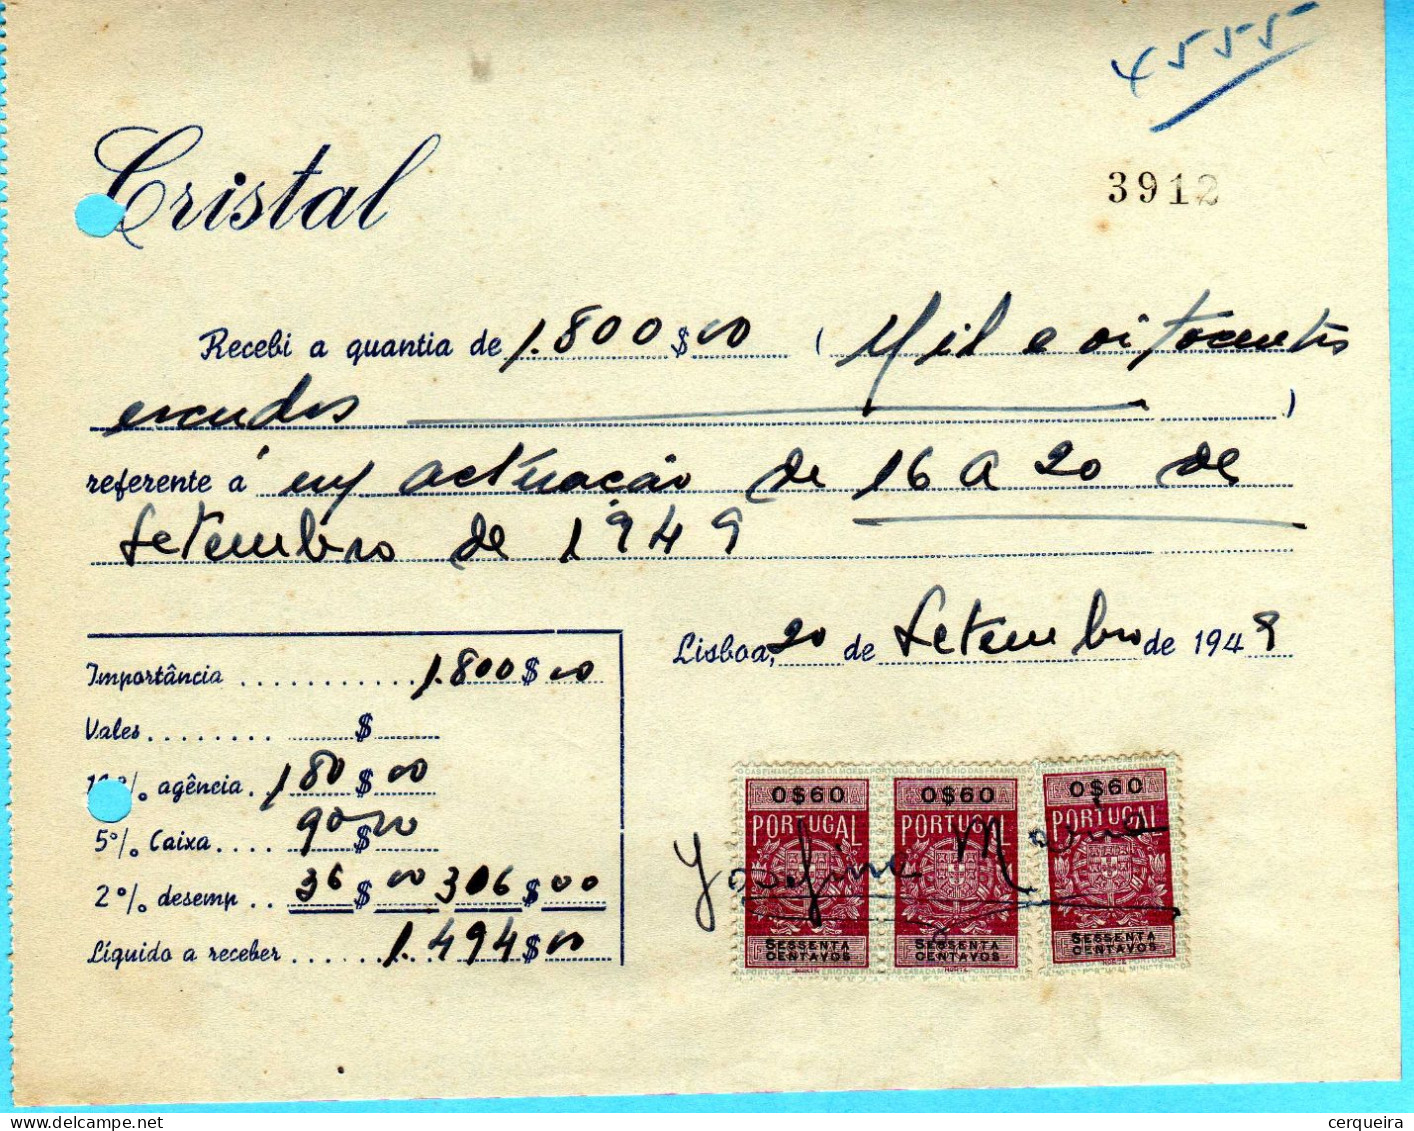 4555
Cristal
3912
Recebi a quantia de 1.800 $ 00 ( Mil e oitocentos
escudos )
referente á m/ actuação de 16 a 20 de
Setembro de 1949
Lisboa, 20 de Setembro de 1949
Importância ........... 1.800 $ 00
Vales ........ $
% agência . 180 $ 00
5% Caixa .... 90 $ 00
2% desemp .. 36 $ 00 306 $ 00
Líquido a receber ...... 1.494 $ 00
0$60 0$60 0$60
PORTUGAL PORTUGAL PORTUGAL
Josefina Maria
SESSENTA CENTAVOS SESSENTA CENTAVOS SESSENTA CENTAVOS
delcampe.net
cerqueira